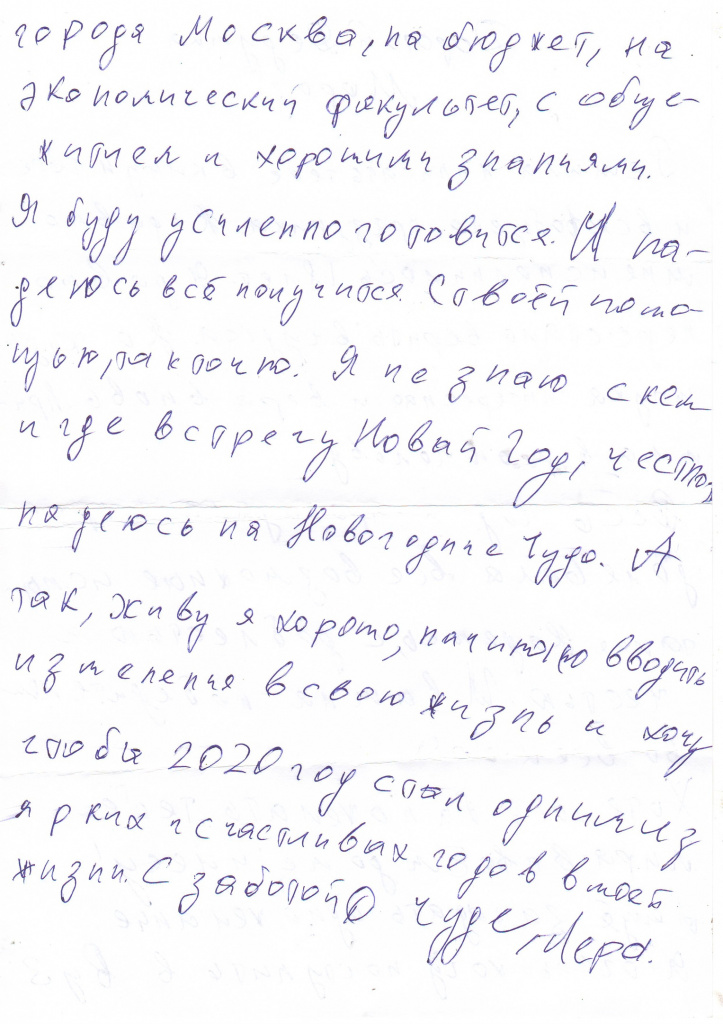 города Москва, на бюджет, на
экономический факультет, с обще-
житием и хорошими знаниями.
Я буду усиленно готовится. И на-
деюсь всё получится. С твоей помо-
щью, так точно. Я не знаю с кем
и где встречу Новый Год, честно,
надеюсь на Новогодние чудо. А
так, живу я хорошо, начинаю вводить
изменения в свою жизнь и хочу
чтобы 2020 год стал одним из
ярких и счастливых годов в моей
жизни. С заботой о чуде, Лера.